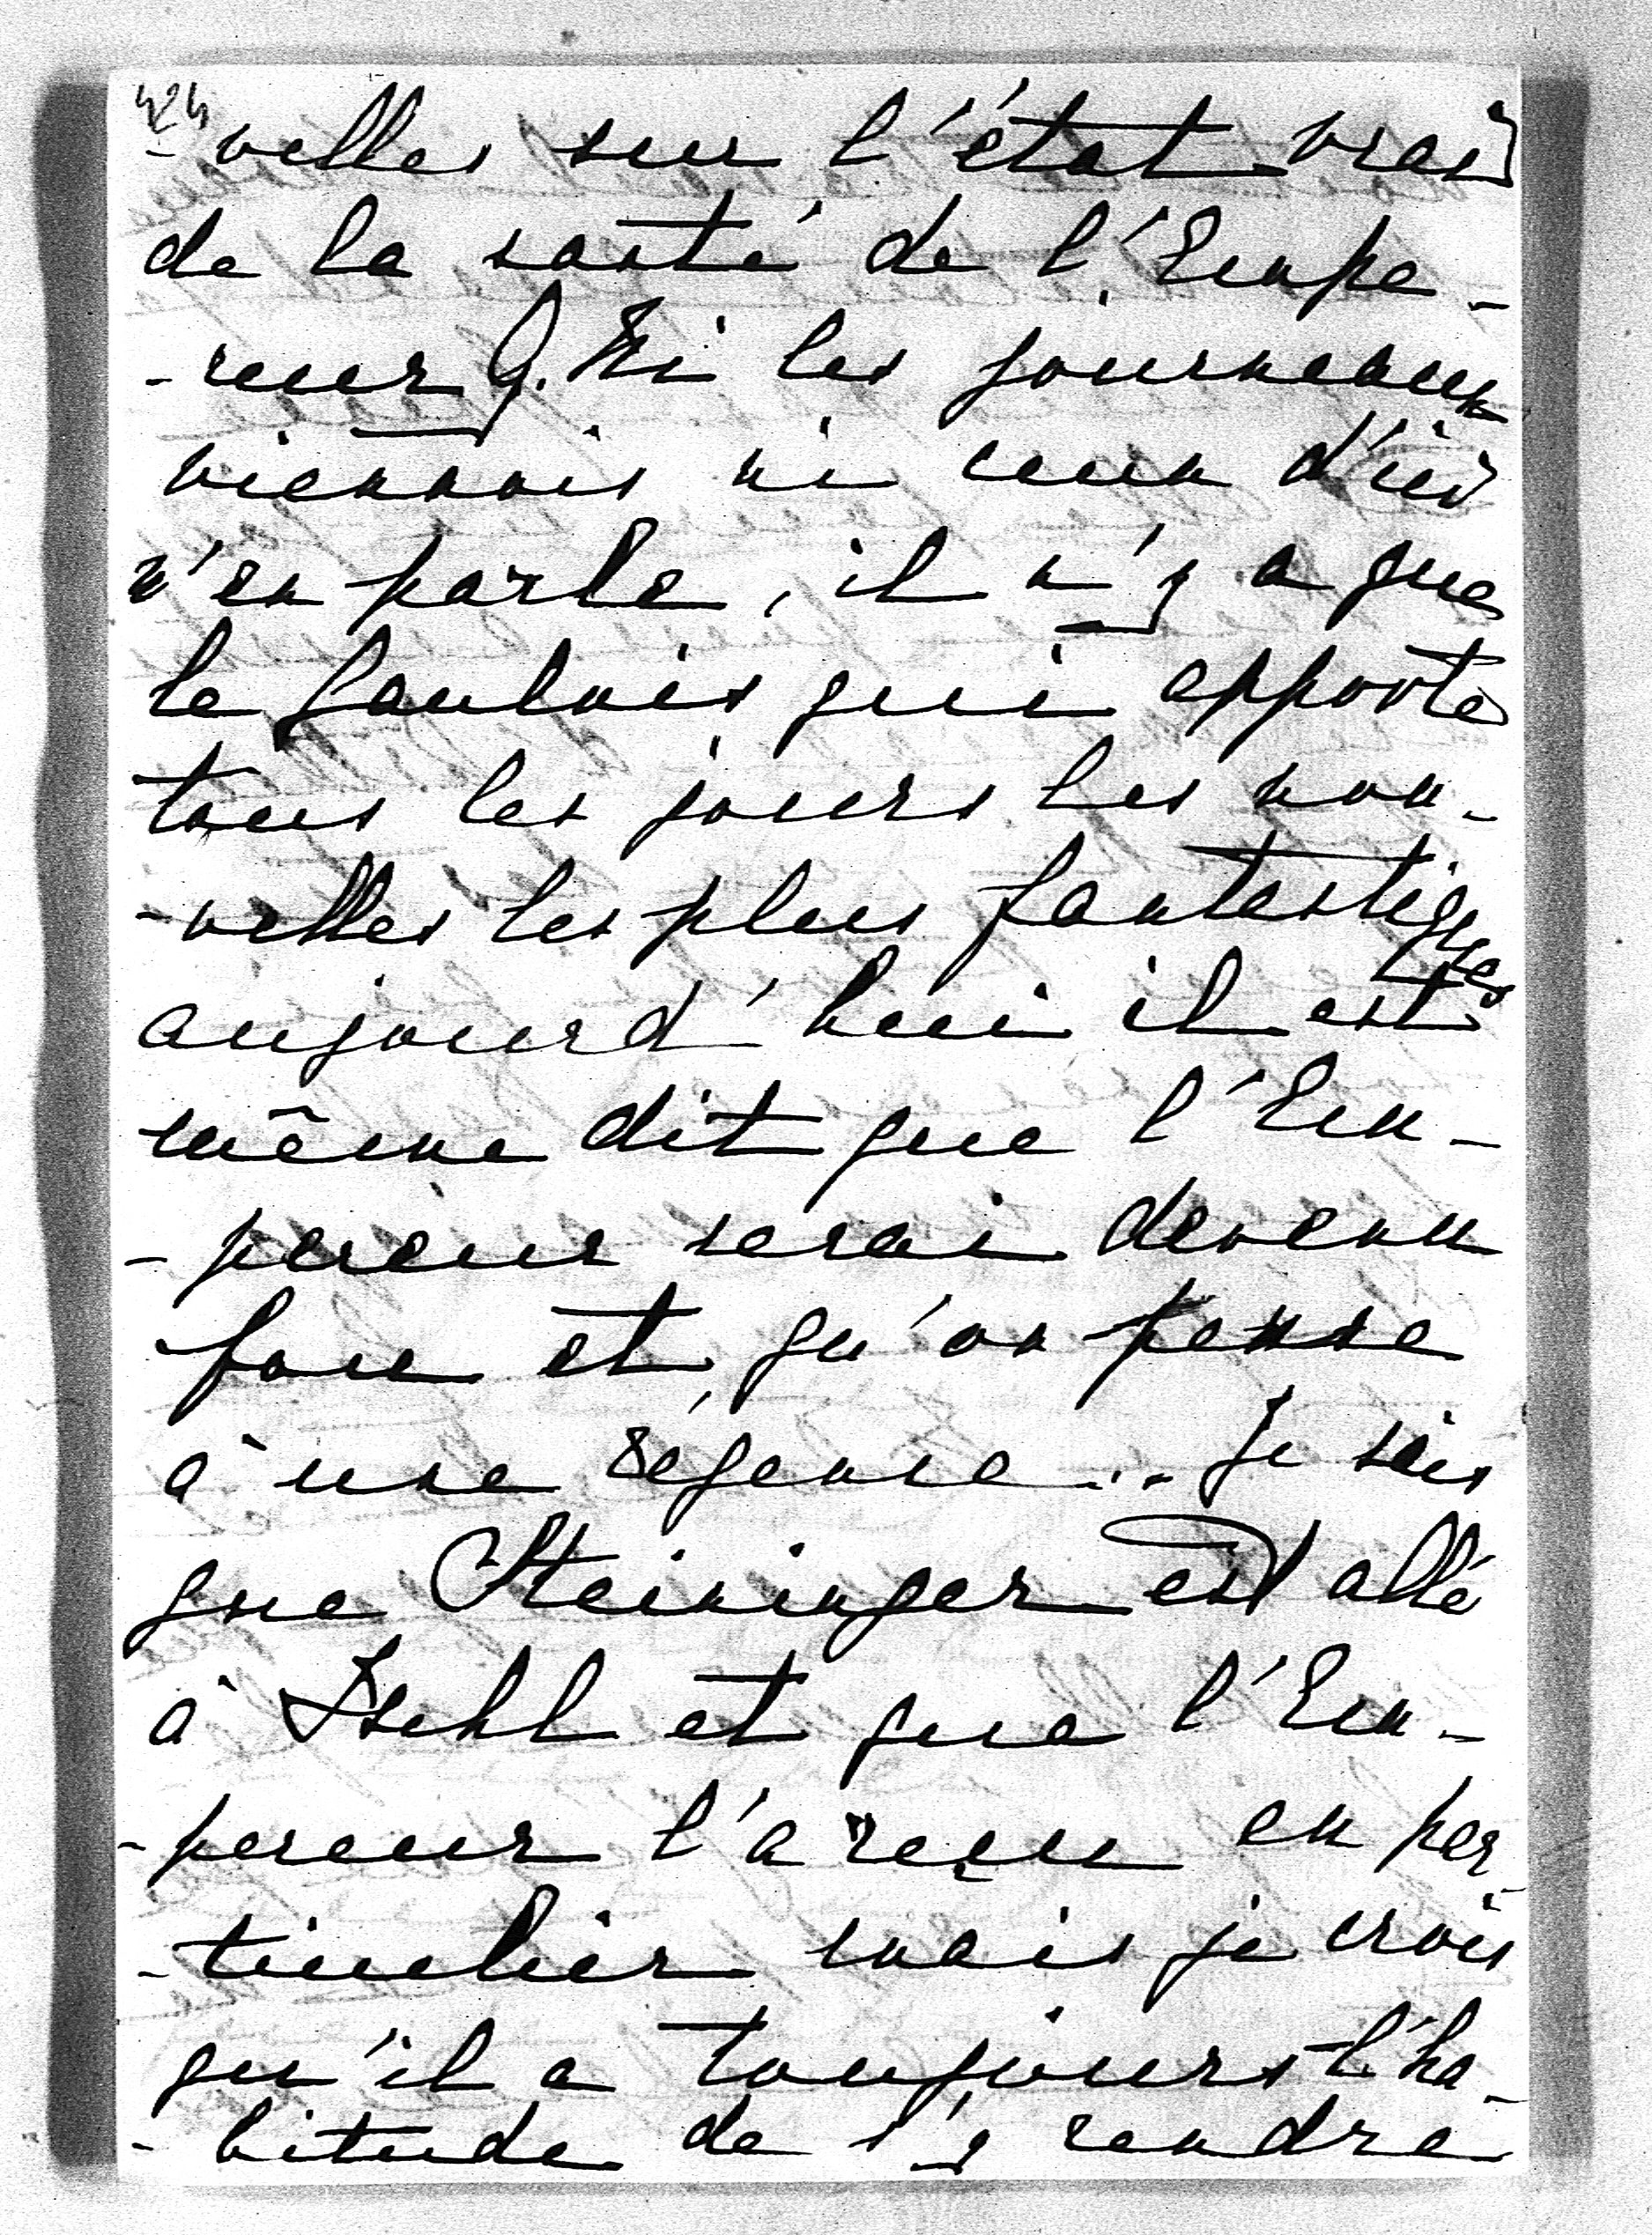 424
-velles sur l'état vrai
de la santé de l'Empe-
-reur G. Ni les journeaux
viennois ni ceux d'ici
n'en parle, il n'y a que
le Gaulois qui apporte
tous les jours les nou-
-velles les plus fantastiques
aujourd'hui il est
même dit que l'Em-
-pereur serai devenu
fou et qu'on pense
à une régence... Je sais
que Steininger est allé
à Ischl et que l'Em-
-pereur l'a reçu en par-
-ticulier mais je crois
qu'il a toujours l'ha-
-bitude de s'y rendre